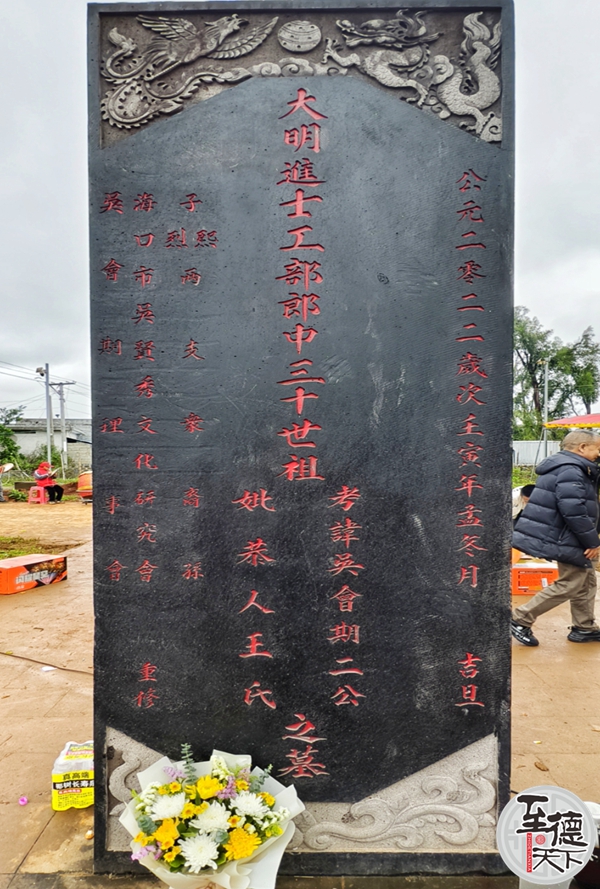 公元二零二二歲次壬寅年孟冬月 吉旦
大明進士工部郎中三十世祖
考諱吳會期二公
妣恭人王氏
之墓
子熙烈兩支衆裔孫
海口市吳賢秀文化研究會 重修
吳會期理事會
至德天下